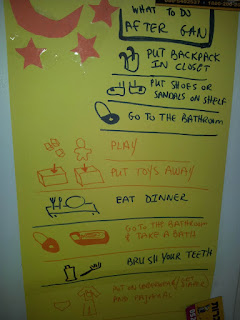 WHAT TO DO
AFTER GAN
PUT BACKPACK
IN CLOSET
PUT SHOES OR
SANDALS ON SHELF
GO TO THE BATHROOM
PLAY
PUT TOYS AWAY
EAT DINNER
GO TO THE BATHROOM
& TAKE A BATH
BRUSH YOUR TEETH
PUT ON UNDERWEAR/
AND PAJAMAS